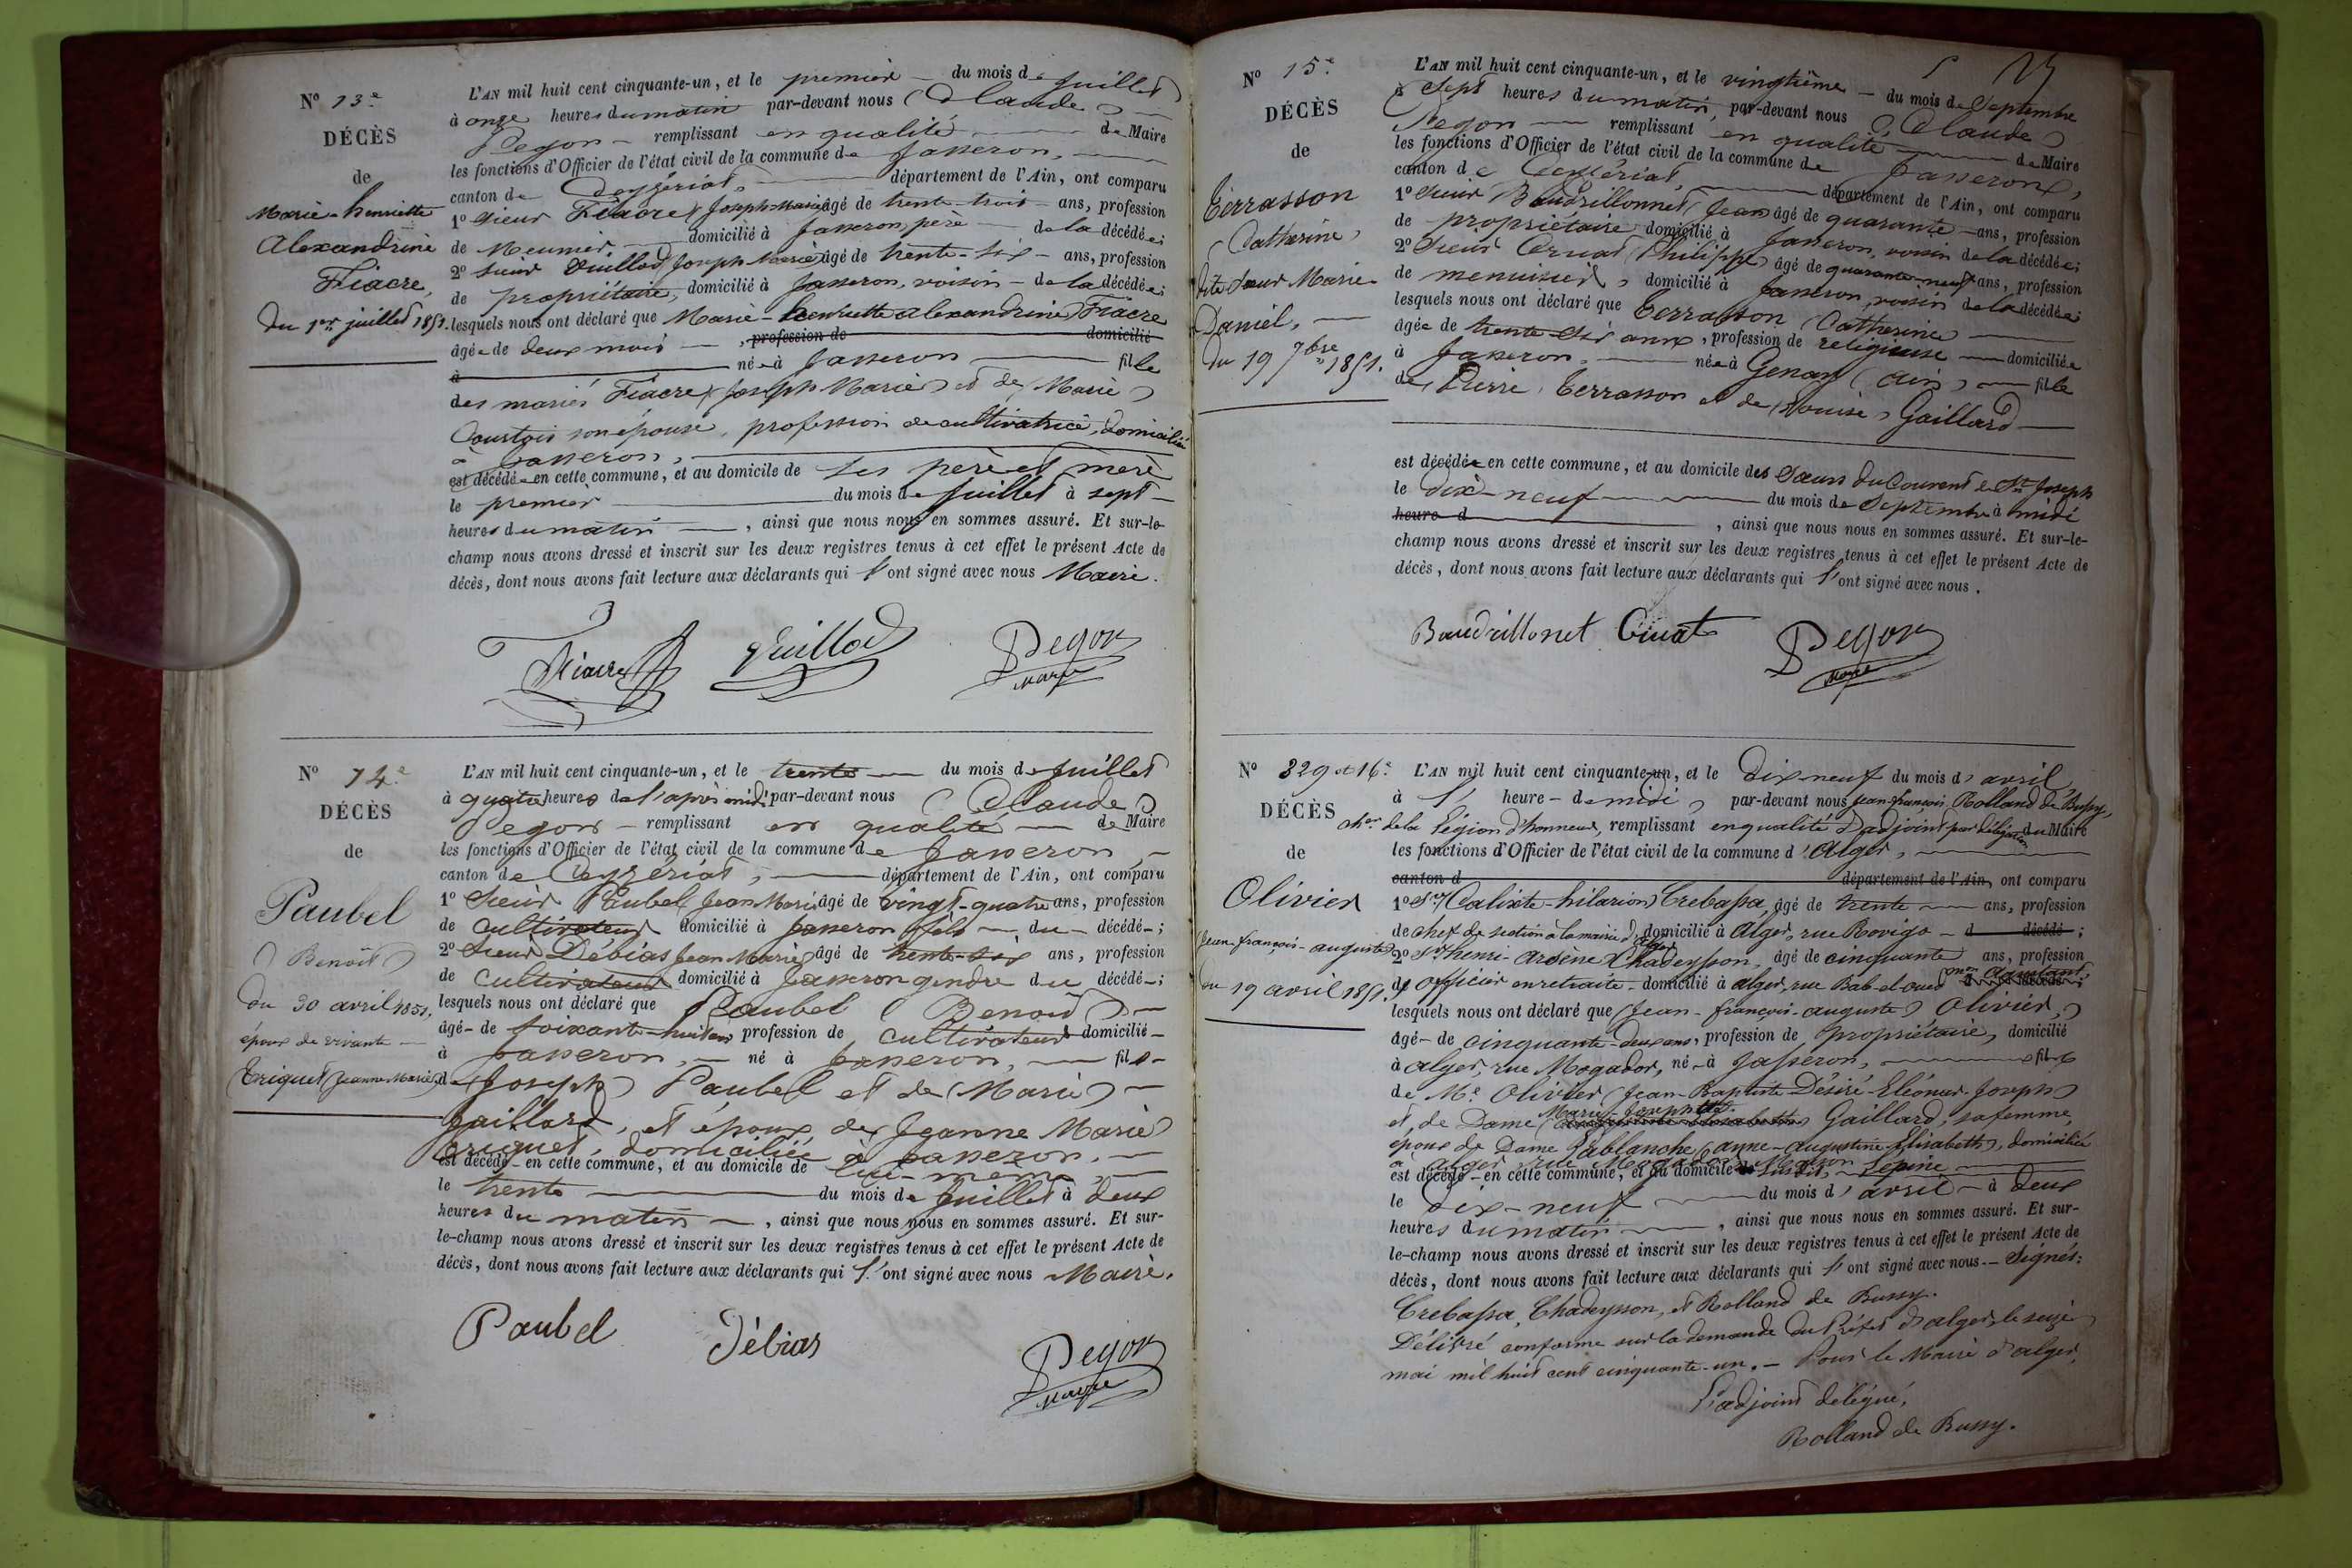 N° 13e
DÉCÈS
de
Marie-henriette
Alexandrine
Fiacre,
Du 1er juillet 1851.
L'AN mil huit cent cinquante-un, et le premier du mois de juillet
à onze heures du matin par-devant nous (Claude)
Pegon remplissant en qualité de Maire
les fonctions d'Officier de l'état civil de la commune de Jasseron,
canton de Ceyzériat, département de l'Ain, ont comparu
1° Sieur Fiacre (Joseph Marie) âgé de trente-trois ans, profession
de Meunier domicilié à Jasseron, père de la décédée;
2° Sieur Vuillod Joseph Marie âgé de trente-six ans, profession
de propriétaire, domicilié à Jasseron, voisin de la décédée;
lesquels nous ont déclaré que Marie-henriette alexandrine Fiacre
âgée de deux mois, profession de domicilié
à née à Jasseron fille
des mariés Fiacre (Joseph Marie) et de (Marie)
Courtois son épouse, profession de cultivatrice, domiciliés
à Jasseron,
est décédée en cette commune, et au domicile de ses père et mère
le premier du mois de juillet à sept
heures du matin, ainsi que nous nous en sommes assuré. Et sur-le-
champ nous avons dressé et inscrit sur les deux registres tenus à cet effet le présent Acte de
décès, dont nous avons fait lecture aux déclarants qui l'ont signé avec nous Maire.
Fiacre Vuillod Pegon
maire
N° 14e
DÉCÈS
de
Paubel
(Benoit)
du 30 avril 1851,
époux de vivante
Criquet (Jeanne Marie)
L'AN mil huit cent cinquante-un, et le trente du mois de juillet
à quatre heures de l'après midi par-devant nous (Claude)
Pegon remplissant en qualité de Maire
les fonctions d'Officier de l'état civil de la commune de Jasseron,
canton de Ceyzériat, département de l'Ain, ont comparu
1° Sieur Paubel Jean Marie âgé de vingt-quatre ans, profession
de cultivateur domicilié à Jasseron fils du décédé;
2° Sieur Débias Jean Marie âgé de trente-six ans, profession
de cultivateur domicilié à Jasseron gendre du décédé;
lesquels nous ont déclaré que Paubel (Benoit)
âgé de soixante-huit ans profession de cultivateur domicilié
à Jasseron, né à Jasseron, fils
de (Joseph) Paubel et de (Marie)
Gaillard, et époux de Jeanne Marie
Criquet, domiciliée à Jasseron.
est décédé en cette commune, et au domicile de lui-même,
le trente du mois de juillet à deux
heures du matin, ainsi que nous nous en sommes assuré. Et sur-
le-champ nous avons dressé et inscrit sur les deux registres tenus à cet effet le présent Acte de
décès, dont nous avons fait lecture aux déclarants qui l'ont signé avec nous Maire.
Paubel Débias Pegon
maire
N° 15e
DÉCÈS
de
Terrasson
(Catherine)
dite Soeur Marie
Daniel,
du 19 7bre 1851.
L'AN mil huit cent cinquante-un, et le vingtième du mois de Septembre
à Sept heures du matin, par-devant nous (Claude)
Pegon remplissant en qualité de Maire
les fonctions d'Officier de l'état civil de la commune de Jasseron,
canton de Ceyzériat, département de l'Ain, ont comparu
1° Sieur Baudrillonnet Jean âgé de quarante ans, profession
de propriétaire domicilié à Jasseron, voisin de la décédée;
2° Sieur (Philippe) âgé de quarante-neuf ans, profession
de menuisier, domicilié à Jasseron, voisin de la décédée;
lesquels nous ont déclaré que Terrasson (Catherine)
âgée de trente-six ans, profession de religieuse domiciliée
à Jasseron. née à Genay (Ain) fille
de (Pierre) Terrasson et de (Louise) Gaillard
est décédée en cette commune, et au domicile des Soeurs du Couvent de St Joseph
le dix-neuf du mois de Septembre à midi
heure d, ainsi que nous nous en sommes assuré. Et sur-le-
champ nous avons dressé et inscrit sur les deux registres tenus à cet effet le présent Acte de
décès, dont nous avons fait lecture aux déclarants qui l'ont signé avec nous.
Baudrillonet Pegon
maire
N° 329 et 16e
DÉCÈS
de
Olivier
Jean-françois-auguste
du 19 avril 1851.
L'AN mil huit cent cinquante-un, et le dix neuf du mois d'avril,
à l'heure de midi, par-devant nous Jean-françois Rolland de Bussy,
cher de la Légion d'honneur, remplissant en qualité d'adjoint par délégation du Maire
les fonctions d'Officier de l'état civil de la commune d'Alger,
canton d département de l'Ain, ont comparu
1° Sr (Calixte-hilarion) Crebassa, âgé de trente ans, profession
de chef de section à la mairie d'alger domicilié à Alger, rue Rovigo d décédé;
2° Sr henri-arsène Chadeysson, âgé de cinquante ans, profession
d'officier en retraite, domicilié à alger, rue Bab-el-oued d décédé;
lesquels nous ont déclaré que (Jean-françois-auguste) Olivier,
âgé de cinquante-deux ans, profession de propriétaire, domicilié
à alger, rue Mogador, né à Jasseron, fils
de Mr Olivier (Jean-Baptiste-Désiré-Eléonor-Joseph)
et de Dame Marie-Josephte Gaillard, sa femme,
époux de Dame Sablanche (anne-augustine-Elisabeth), domiciliée
à alger, rue Mogador, Maison Lépine
est décédé en cette commune, et au domicile susdit,
le dix-neuf du mois d'avril à deux
heures du matin, ainsi que nous nous en sommes assuré. Et sur-
le-champ nous avons dressé et inscrit sur les deux registres tenus à cet effet le présent Acte de
décès, dont nous avons fait lecture aux déclarants qui l'ont signé avec nous. Signés:
Crebassa, Chadeysson, et Rolland de Bussy.
Délivré conforme sur la demande du Préfet d'alger, le seize
mai mil huit cent cinquante-un. — Pour le Maire d'alger,
L'adjoint délégué,
Rolland de Bussy.